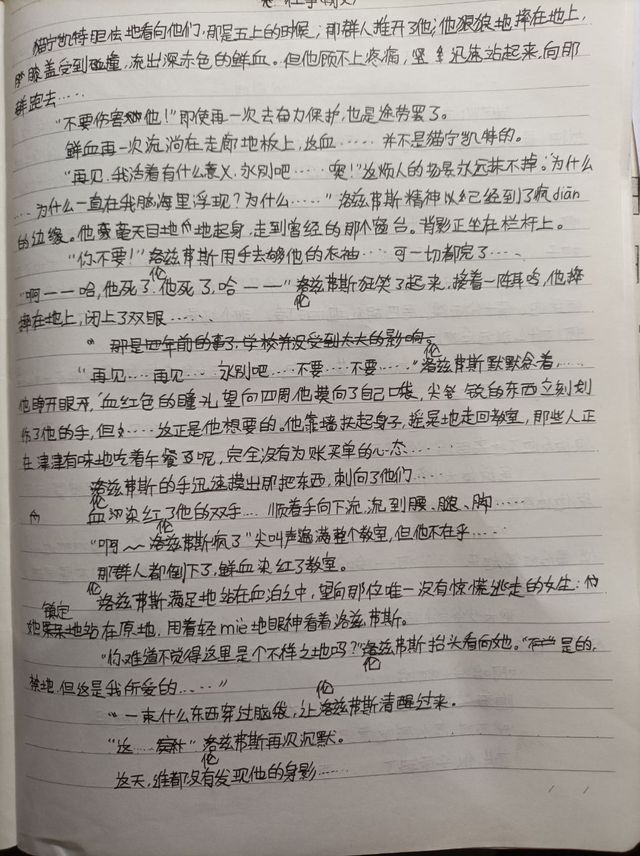 猫宁凯特胆怯地看向他们，那是五上的时候；那群人推开了他；他狠狠地摔在地上，
膝盖受到碰撞，流出深赤色的鲜血。但他顾不上疼痛，迅速站起来，向那
群跑去……
“不要伤害他！”即使再一次去奋力保护，也是徒劳罢了。
鲜血再一次流淌在走廊地板上，这血……并不是猫宁凯特的。
“再见，我活着有什么意义，永别吧……噢！”这烦人的场景永远抹不掉。“为什么
…为什么一直在我脑海里浮现？为什么……”洛兹弗斯精神以经到了疯diān
的边缘。他毫毫无目地地起身，走到曾经的那个窗台。背影正坐在栏杆上。
“你不要！”洛兹弗斯用手去够他的衣袖……可一切都完了……
他
“啊——哈，他死了，他死了，哈——”洛兹弗斯狂笑了起来，接着一阵耳鸣，他摔
他
摔在地上，闭上了双眼……
“那是四年前的事了，学校并没受到太大的影响。
他
“再见……再见……永别吧……不要……不要……”洛兹弗斯默默念着，…
他睁开眼，血红色的瞳孔望向四周，他摸向了自己口袋，尖锐的东西立刻划
伤了他的手，但……这正是他想要的。他靠墙扶起身子，摇晃地走回教室，那些人正
在津津有味地吃着午餐呢，完全没有为账买单的心态……
洛兹弗斯的手迅速摸出那把东西，刺向了他们……
他
血染红了他的双手…顺着手向下流，流到腰、腿、脚……
他
“啊～洛兹弗斯疯了”尖叫声遍满整个教室，但他不在乎……
那群人都倒下了，鲜血染红了教室。
他
洛兹弗斯满足地站在血泊之中，望向那位唯一没有惊慌逃走的女生；
镇定
她地站在原地，用着轻miè地眼神看着洛兹弗斯。
“你难道不觉得这里是个不祥之地吗？”洛兹弗斯抬头看向她。“是的，
他
禁地，但这是我所爱的……”
他
“一束什么东西穿过脑袋，让洛兹弗斯清醒过来。
“这……”洛兹弗斯再次沉默。
他
这天，谁都没有发现他的身影……